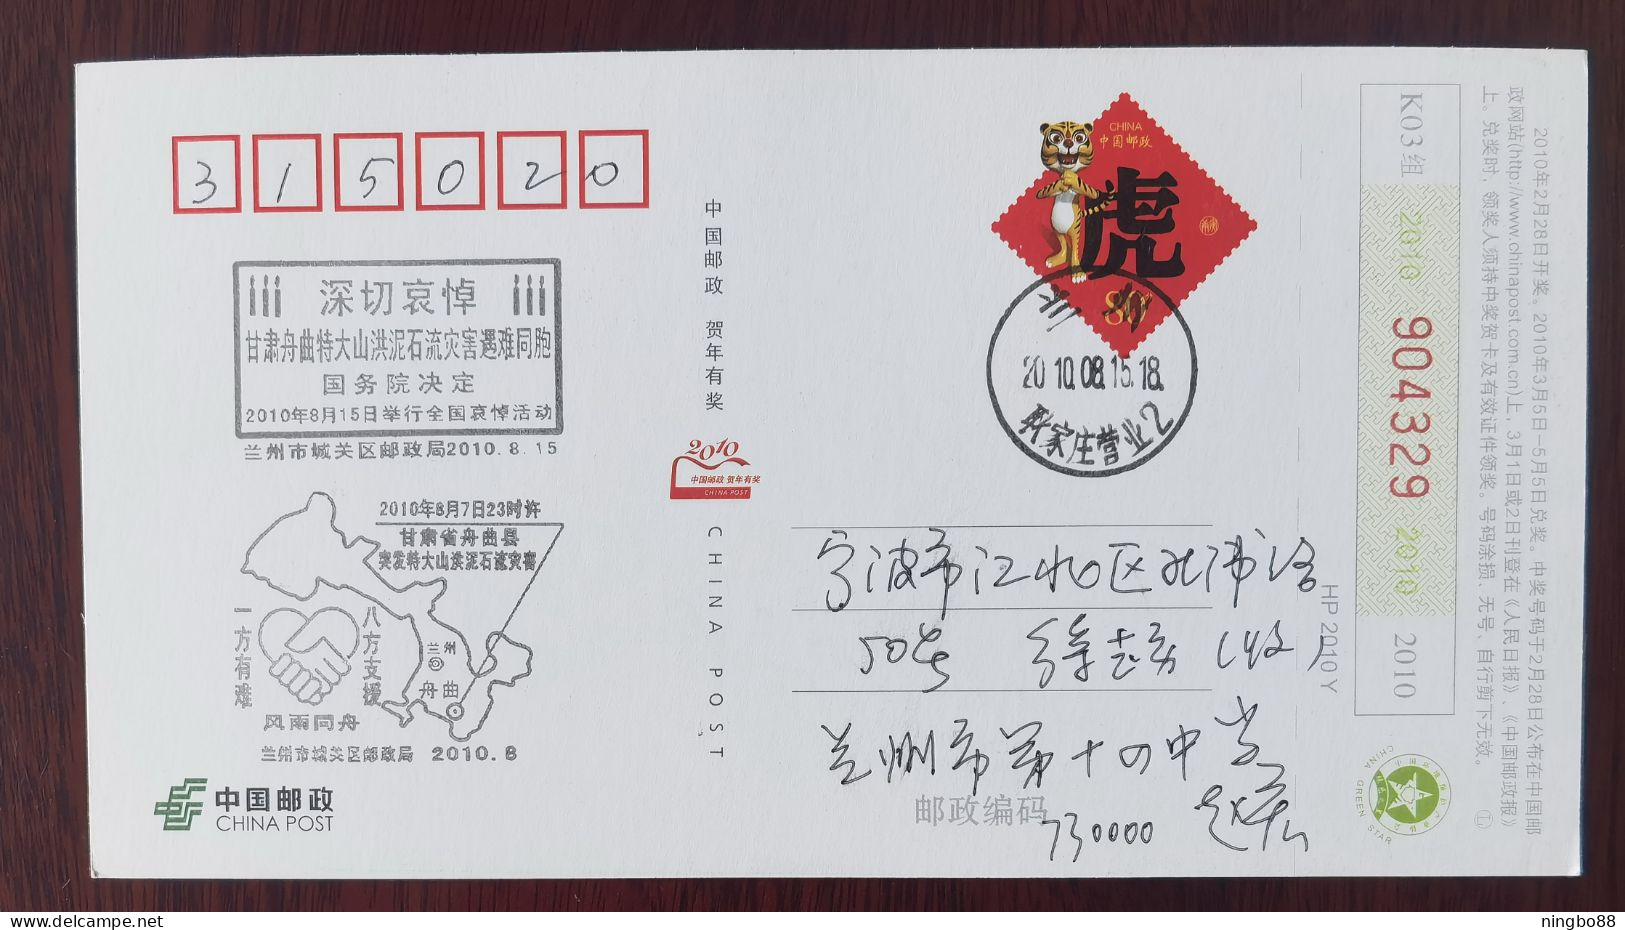 315020
深切哀悼
甘肃舟曲特大山洪泥石流灾害遇难同胞
国务院决定
2010年8月15日举行全国哀悼活动
兰州市城关区邮政局2010.8.15
2010年8月7日23时许
甘肃省舟曲县
突发特大山洪泥石流灾害
一方有难
八方支援
兰州
舟曲
风雨同舟
兰州市城关区邮政局 2010.8
中国邮政
CHINA POST
中国邮政 贺年有奖
2010
中国邮政 贺年有奖
CHINA POST
CHINA POST
CHINA
中国邮政
虎
80
兰州
2010.08.15.18.
耿家庄营业2
宁波市江北区
50号 (收)
兰州市第十四中学
邮政编码
730000
HP2010Y
K03组
2010 904329 2010
2010
2010年2月28日开奖。2010年3月5日-5月5日兑奖。中奖号码于2月28日公布在中国邮
政网站(http://www.chinapost.com.cn)上，3月1日或2日刊登在《人民日报》、《中国邮政报》
上。兑奖时，领奖人须持中奖贺卡及有效证件领奖。号码涂损、无号、自行剪下无效。
CHINA GREEN STAR
ningbo88